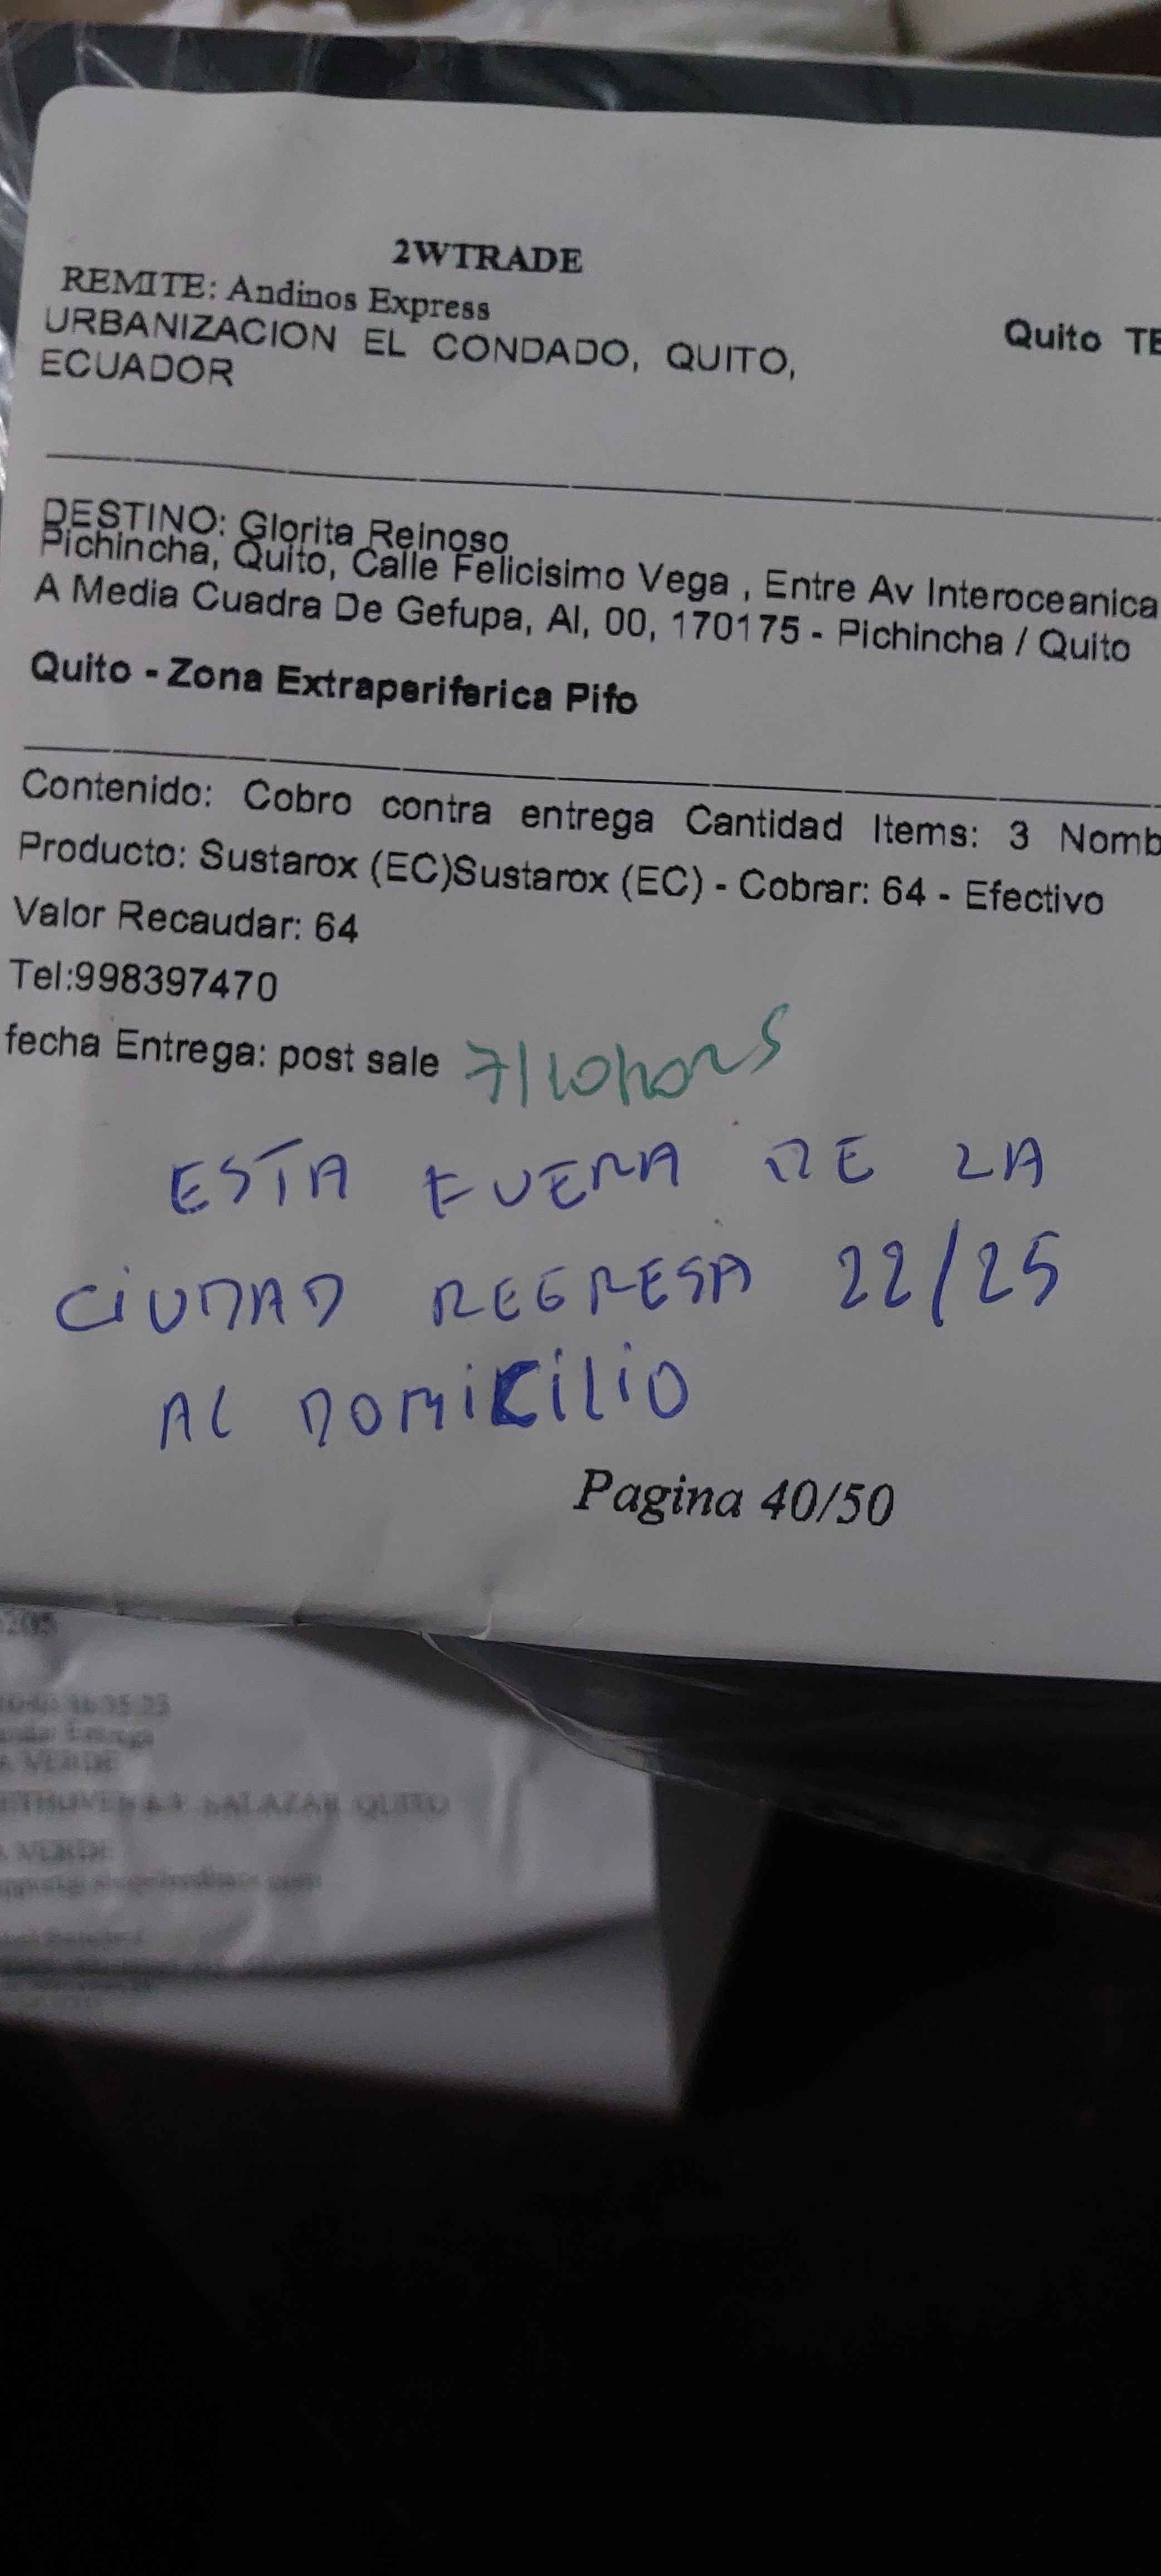 2WTRADE
REMITE: Andinos Express
URBANIZACION EL CONDADO, QUITO,
ECUADOR
Quito TE
DESTINO: Glorita Reinoso
Pichincha, Quito, Calle Felicisimo Vega , Entre Av Interoceanica
A Media Cuadra De Gefupa, Al, 00, 170175 - Pichincha / Quito
Quito - Zona Extraperiferica Pifo
Contenido: Cobro contra entrega Cantidad Items: 3 Nomb
Producto: Sustarox (EC)Sustarox (EC) - Cobrar: 64 - Efectivo
Valor Recaudar: 64
Tel:998397470
fecha Entrega: post sale 7/10/2025
ESTA FUERA DE LA
CIUDAD REGRESA 22/25
AL DOMICILIO
Pagina 40/50
VERDE
SALAZAR QUITO
VERDE